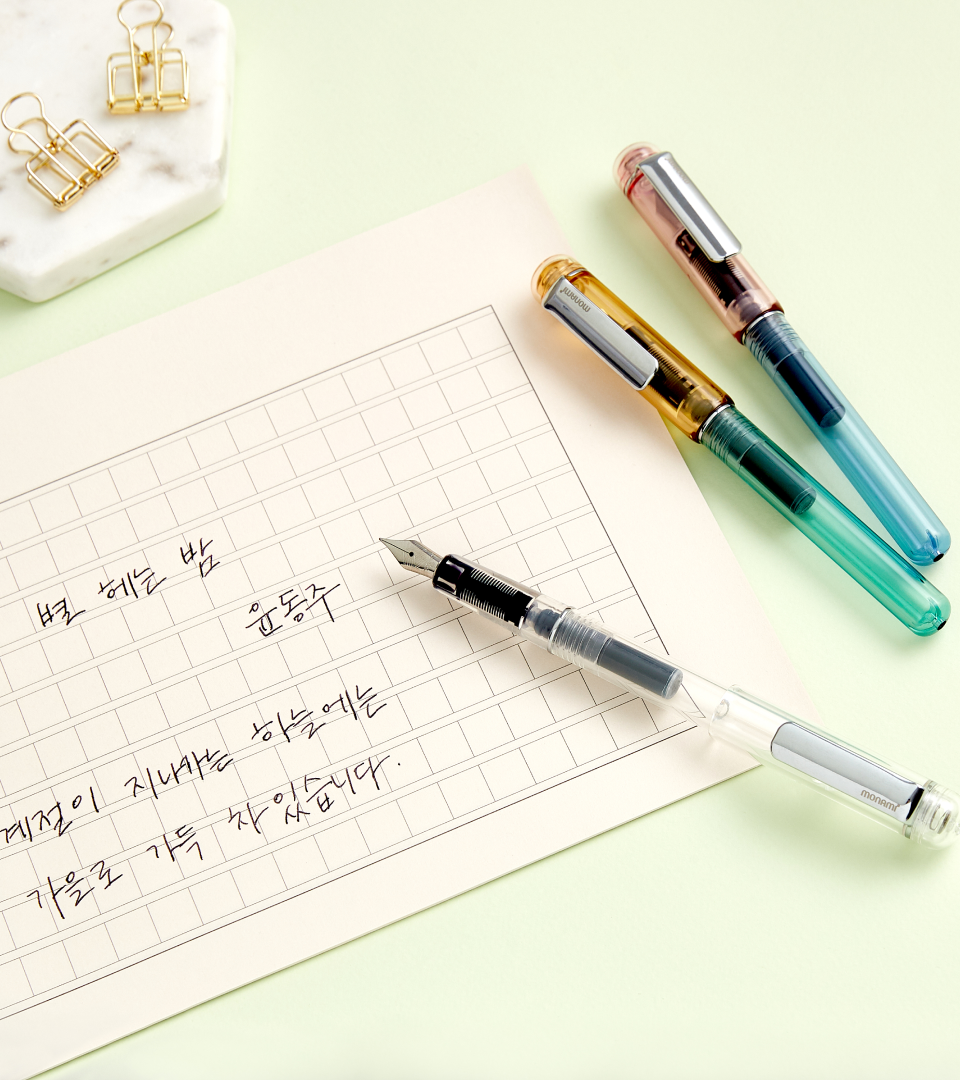 별 헤는 밤
윤동주
계절이 지나가는 하늘에는
가을로 가득 차 있습니다.
monami
monami